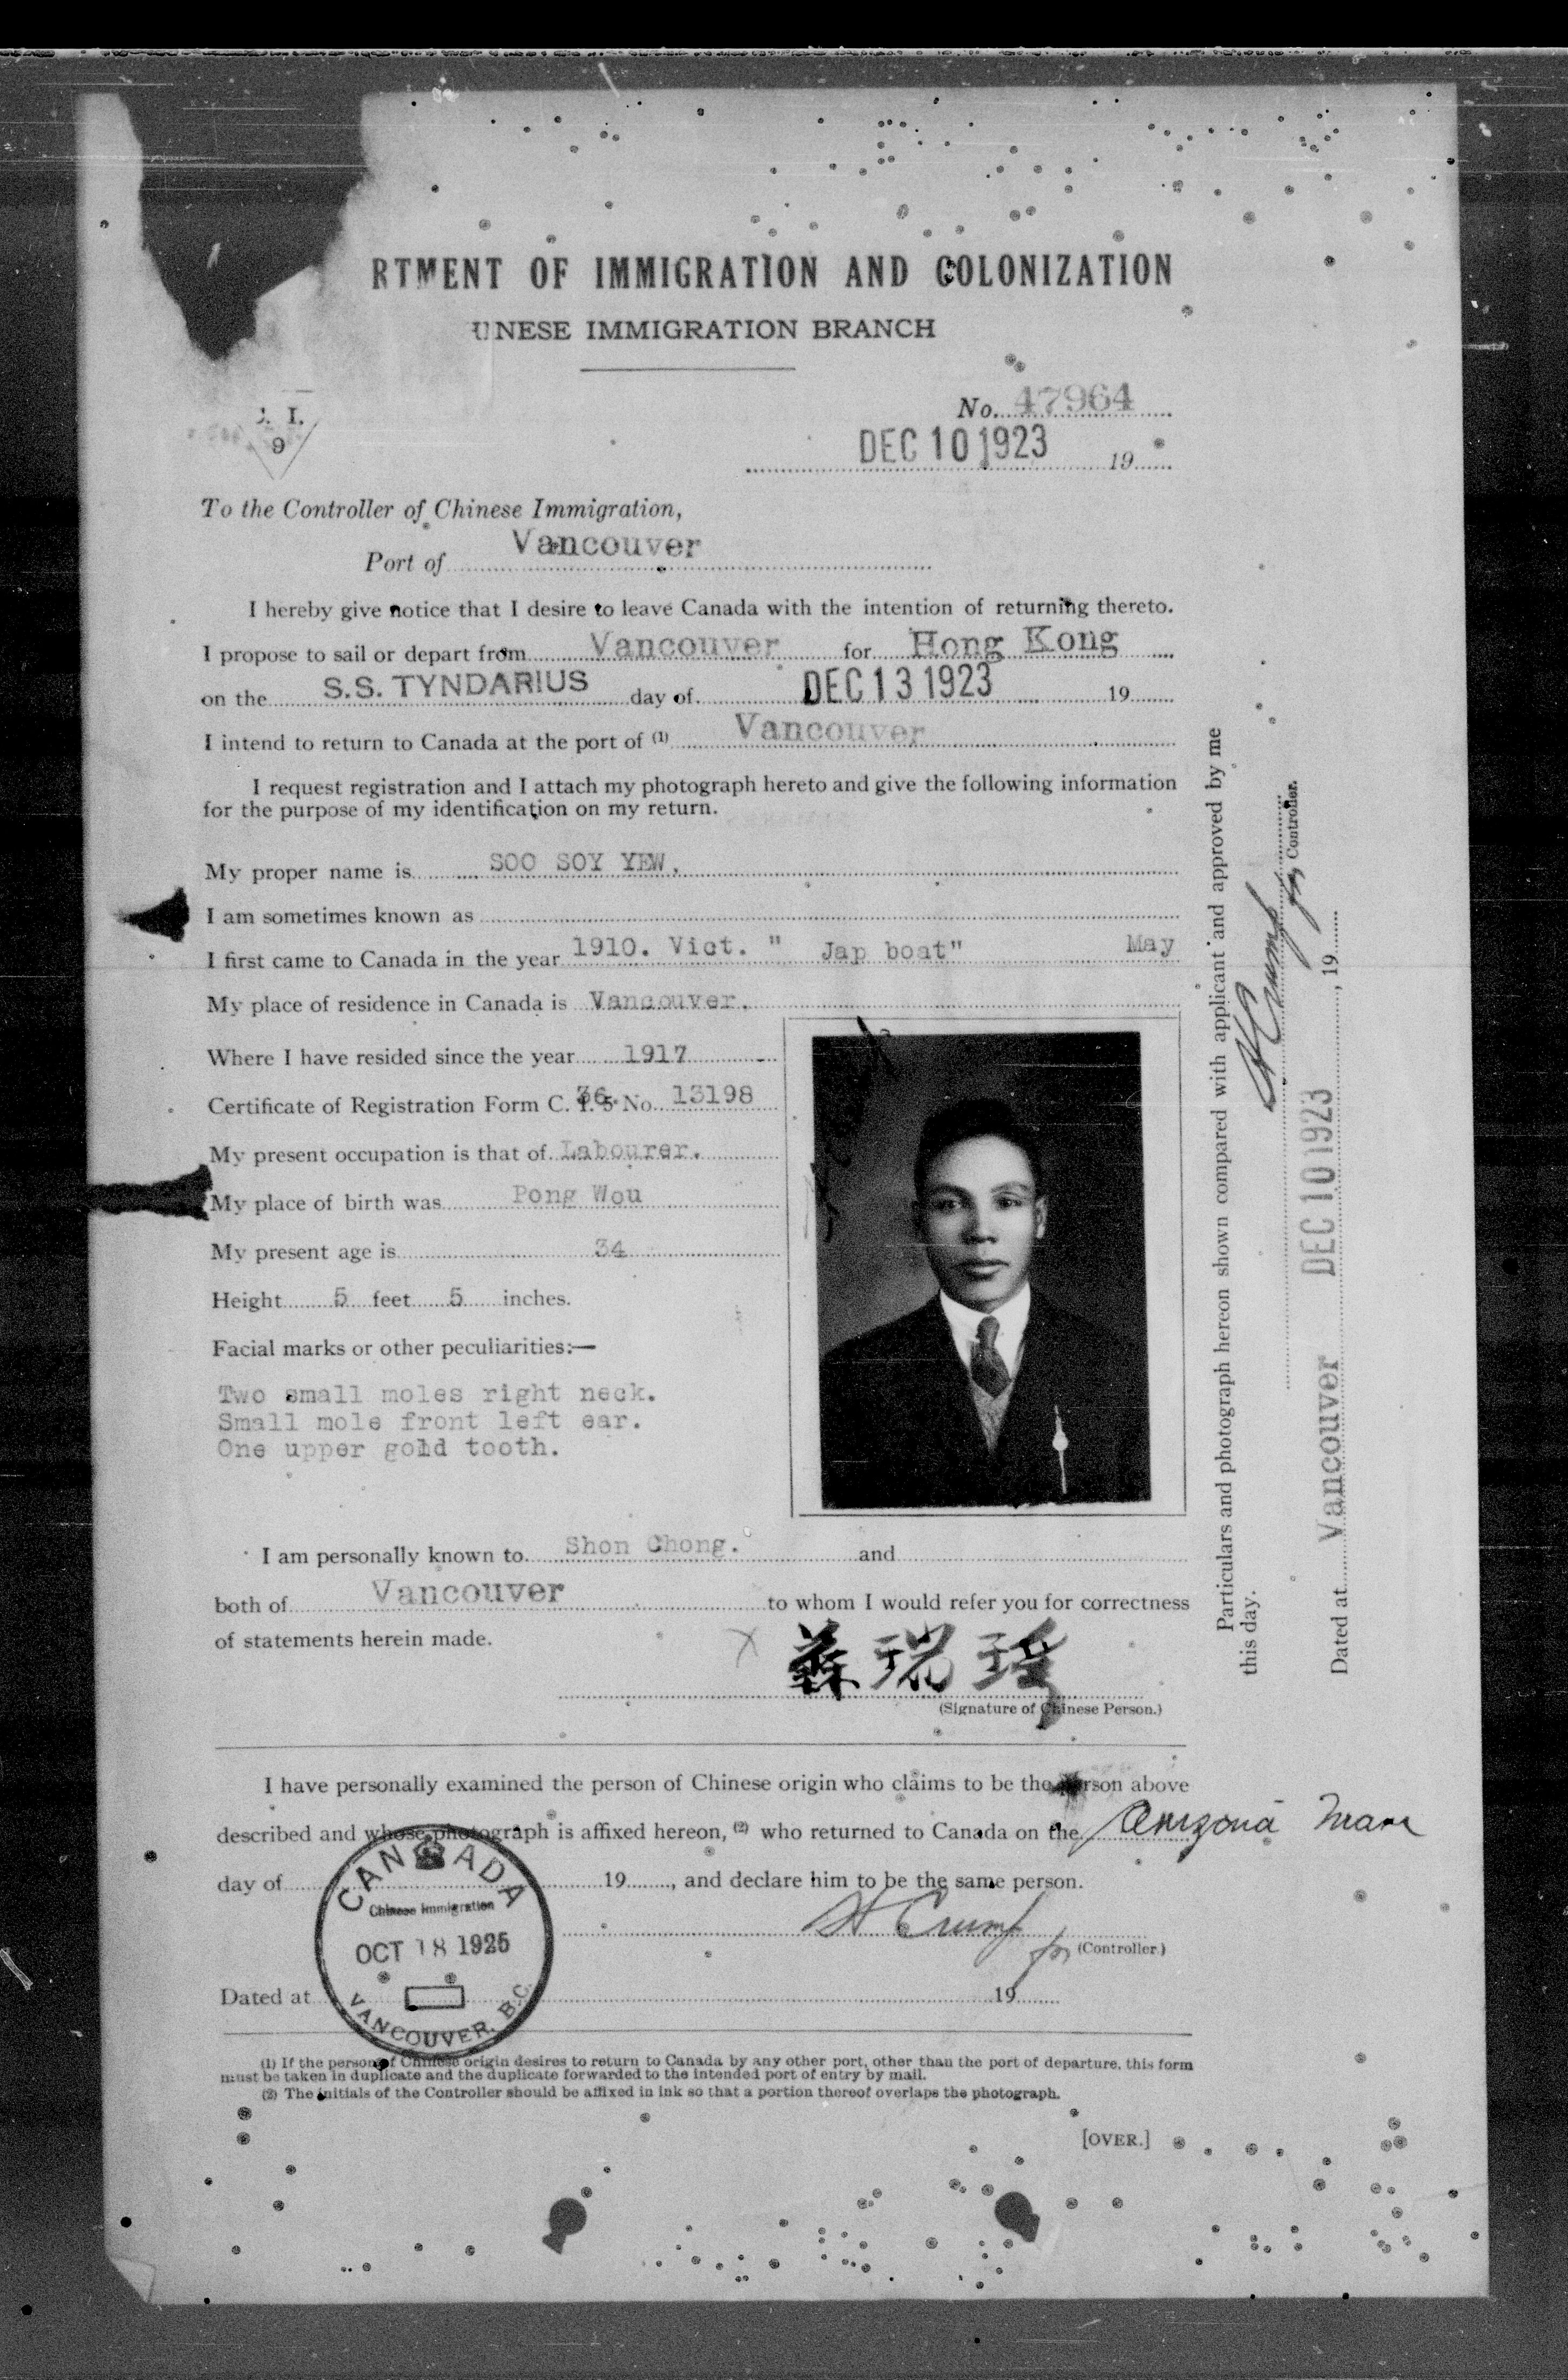 RTMENT OF IMMIGRATION AND COLONIZATION
NESE IMMIGRATION BRANCH
. I.
9
No. 47964
DEC 10 1923 19
To the Controller of Chinese Immigration,
Port of Vancouver
I hereby give notice that I desire to leave Canada with the intention of returning thereto.
I propose to sail or depart from Vancouver for Hong Kong
on the S.S. TYNDARIUS day of DEC 13 1923 19
I intend to return to Canada at the port of (1) Vancouver
I request registration and I attach my photograph hereto and give the following information
for the purpose of my identification on my return.
My proper name is SOO SOY YEW,
I am sometimes known as
I first came to Canada in the year 1910. Vict. " Jap boat" May
My place of residence in Canada is Vancouver.
Where I have resided since the year 1917
Certificate of Registration Form C. I. 5 36. No. 13198
My present occupation is that of Labourer.
My place of birth was Pong Wou
My present age is 34
Height 5 feet 5 inches.
Facial marks or other peculiarities:—
Two small moles right neck.
Small mole front left ear.
One upper gold tooth.
I am personally known to Shon Chong. and
both of Vancouver to whom I would refer you for correctness
of statements herein made.
X 蘇瑞瑤
(Signature of Chinese Person.)
I have personally examined the person of Chinese origin who claims to be the person above
described and whose photograph is affixed hereon, (2) who returned to Canada on the Arizona Maru
day of 19, and declare him to be the same person.
H Crump for (Controller.)
Dated at 19
CANADA
Chinese Immigration
OCT 18 1925
VANCOUVER, B.C.
(1) If the person of Chinese origin desires to return to Canada by any other port, other than the port of departure, this form
must be taken in duplicate and the duplicate forwarded to the intended port of entry by mail.
(2) The initials of the Controller should be affixed in ink so that a portion thereof overlaps the photograph.
[OVER.]
Particulars and photograph hereon shown compared with applicant and approved by me
this day.
H Crump for Controller.
DEC 10 1923
Dated at Vancouver, 19